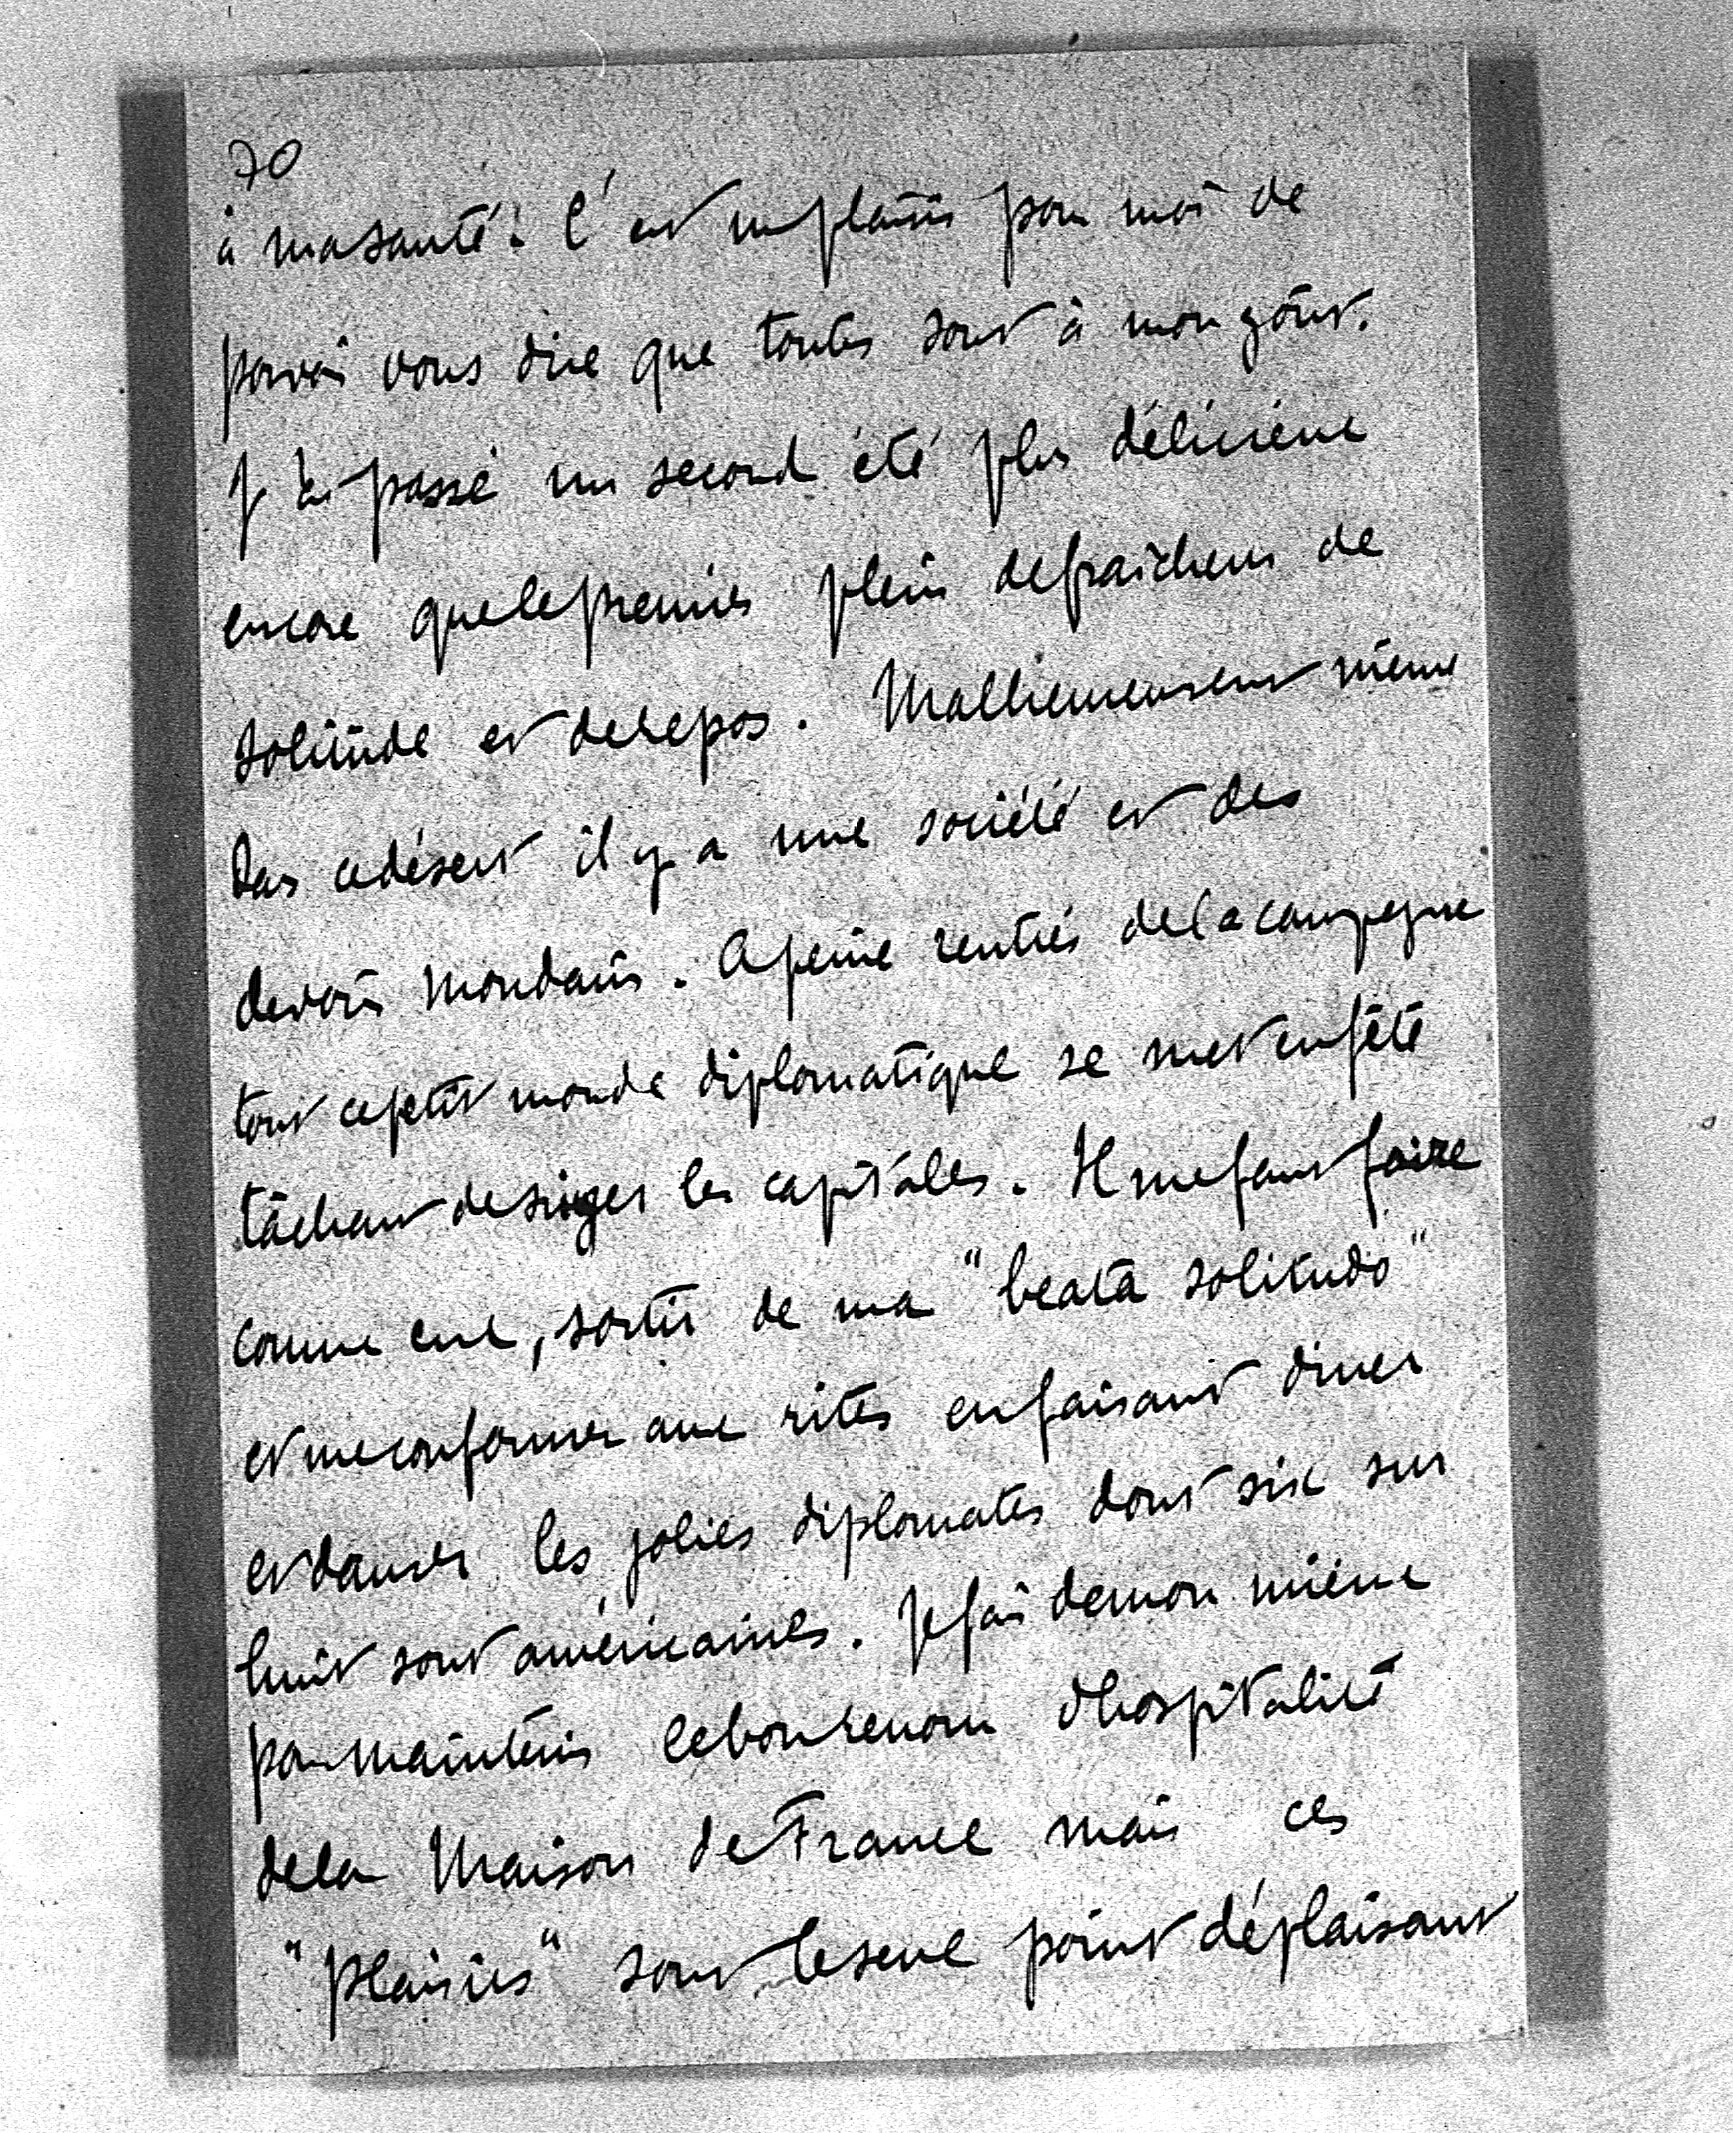 70
à ma santé. C'est un plaisir pour moi de
pouvoir vous dire que toutes sont à mon goût.
J'ai passé un second été plus délicieux
encore que le premier plein de fraîcheur de
solitude et de repos. Malheureusement même
dans ce désert il y a une société et des
devoirs mondains. A peine rentrés de la campagne
tout ce petit monde diplomatique se met en fête
tâchant de singer les capitales. Il me faut faire
comme eux, sortir de ma "beata solitudo"
et me conformer aux rites en faisant dîner
et danser les jolies diplomates dont six sur
huit sont américaines. Je fais de mon mieux
pour maintenir le bon renom d'hospitalité
de la Maison de France mais ces
"plaisirs" sont le seul point déplaisant